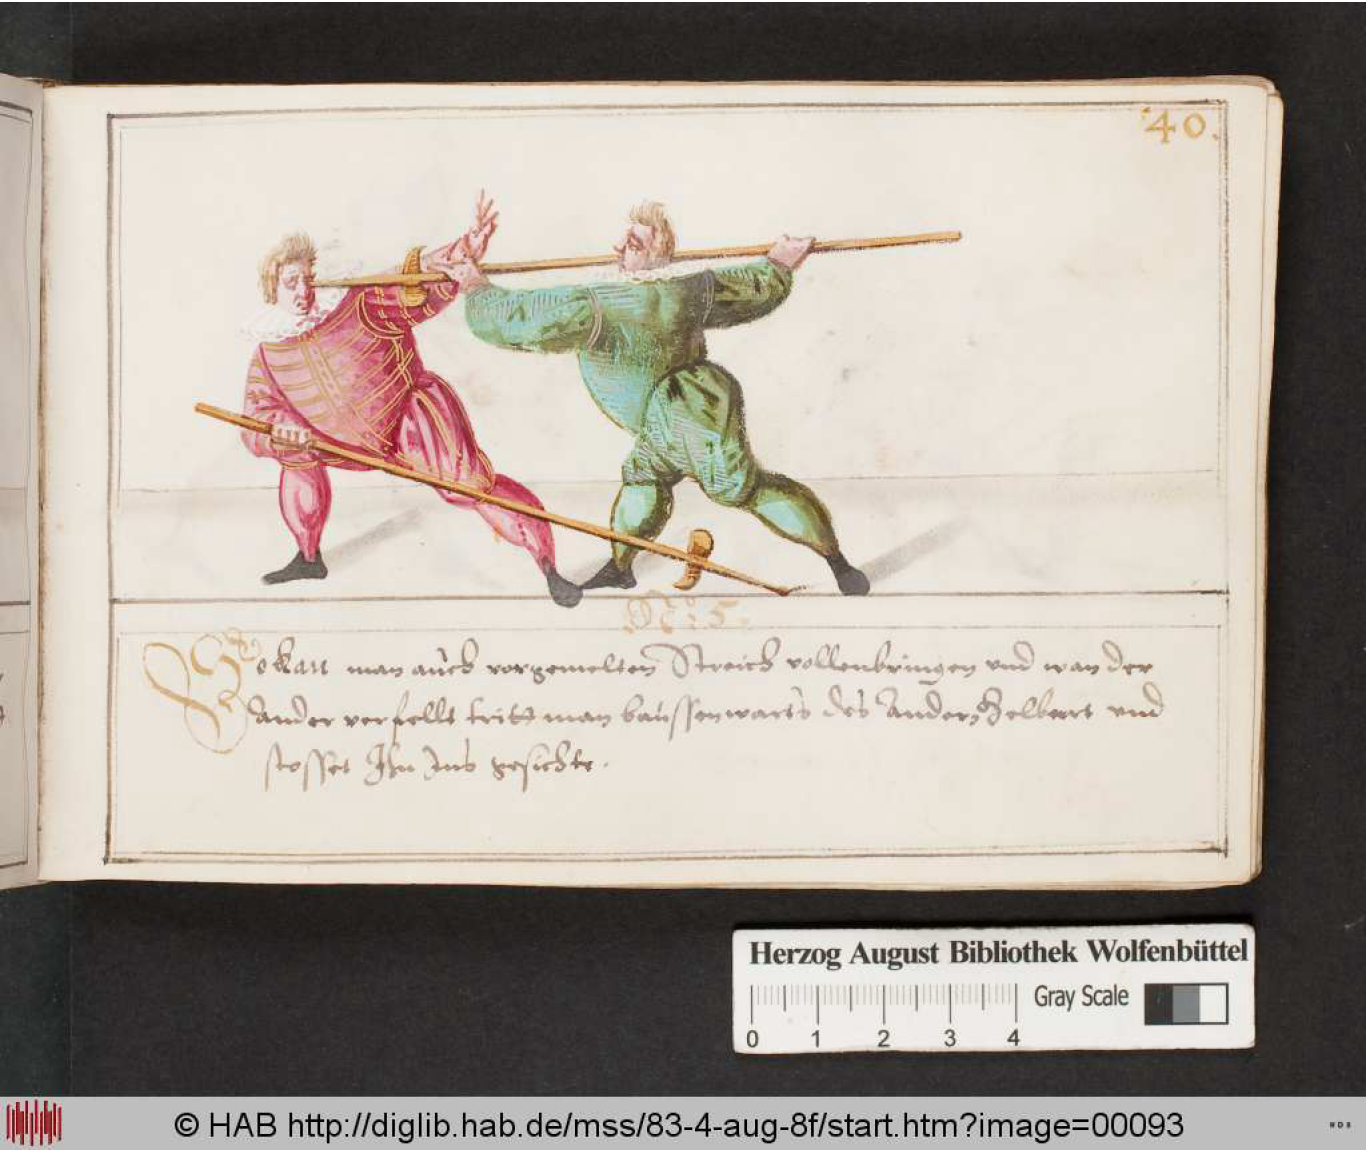 40.
No: 5.
So kan man auch vorgemelten Streich vollenbringen vnd wan der
ander verfellt tritt man baussenwarts des Andern helbart vnd
stosset Ihn Ins gesichte.
Herzog August Bibliothek Wolfenbüttel
Gray Scale
0 1 2 3 4
© HAB http://diglib.hab.de/mss/83-4-aug-8f/start.htm?image=00093